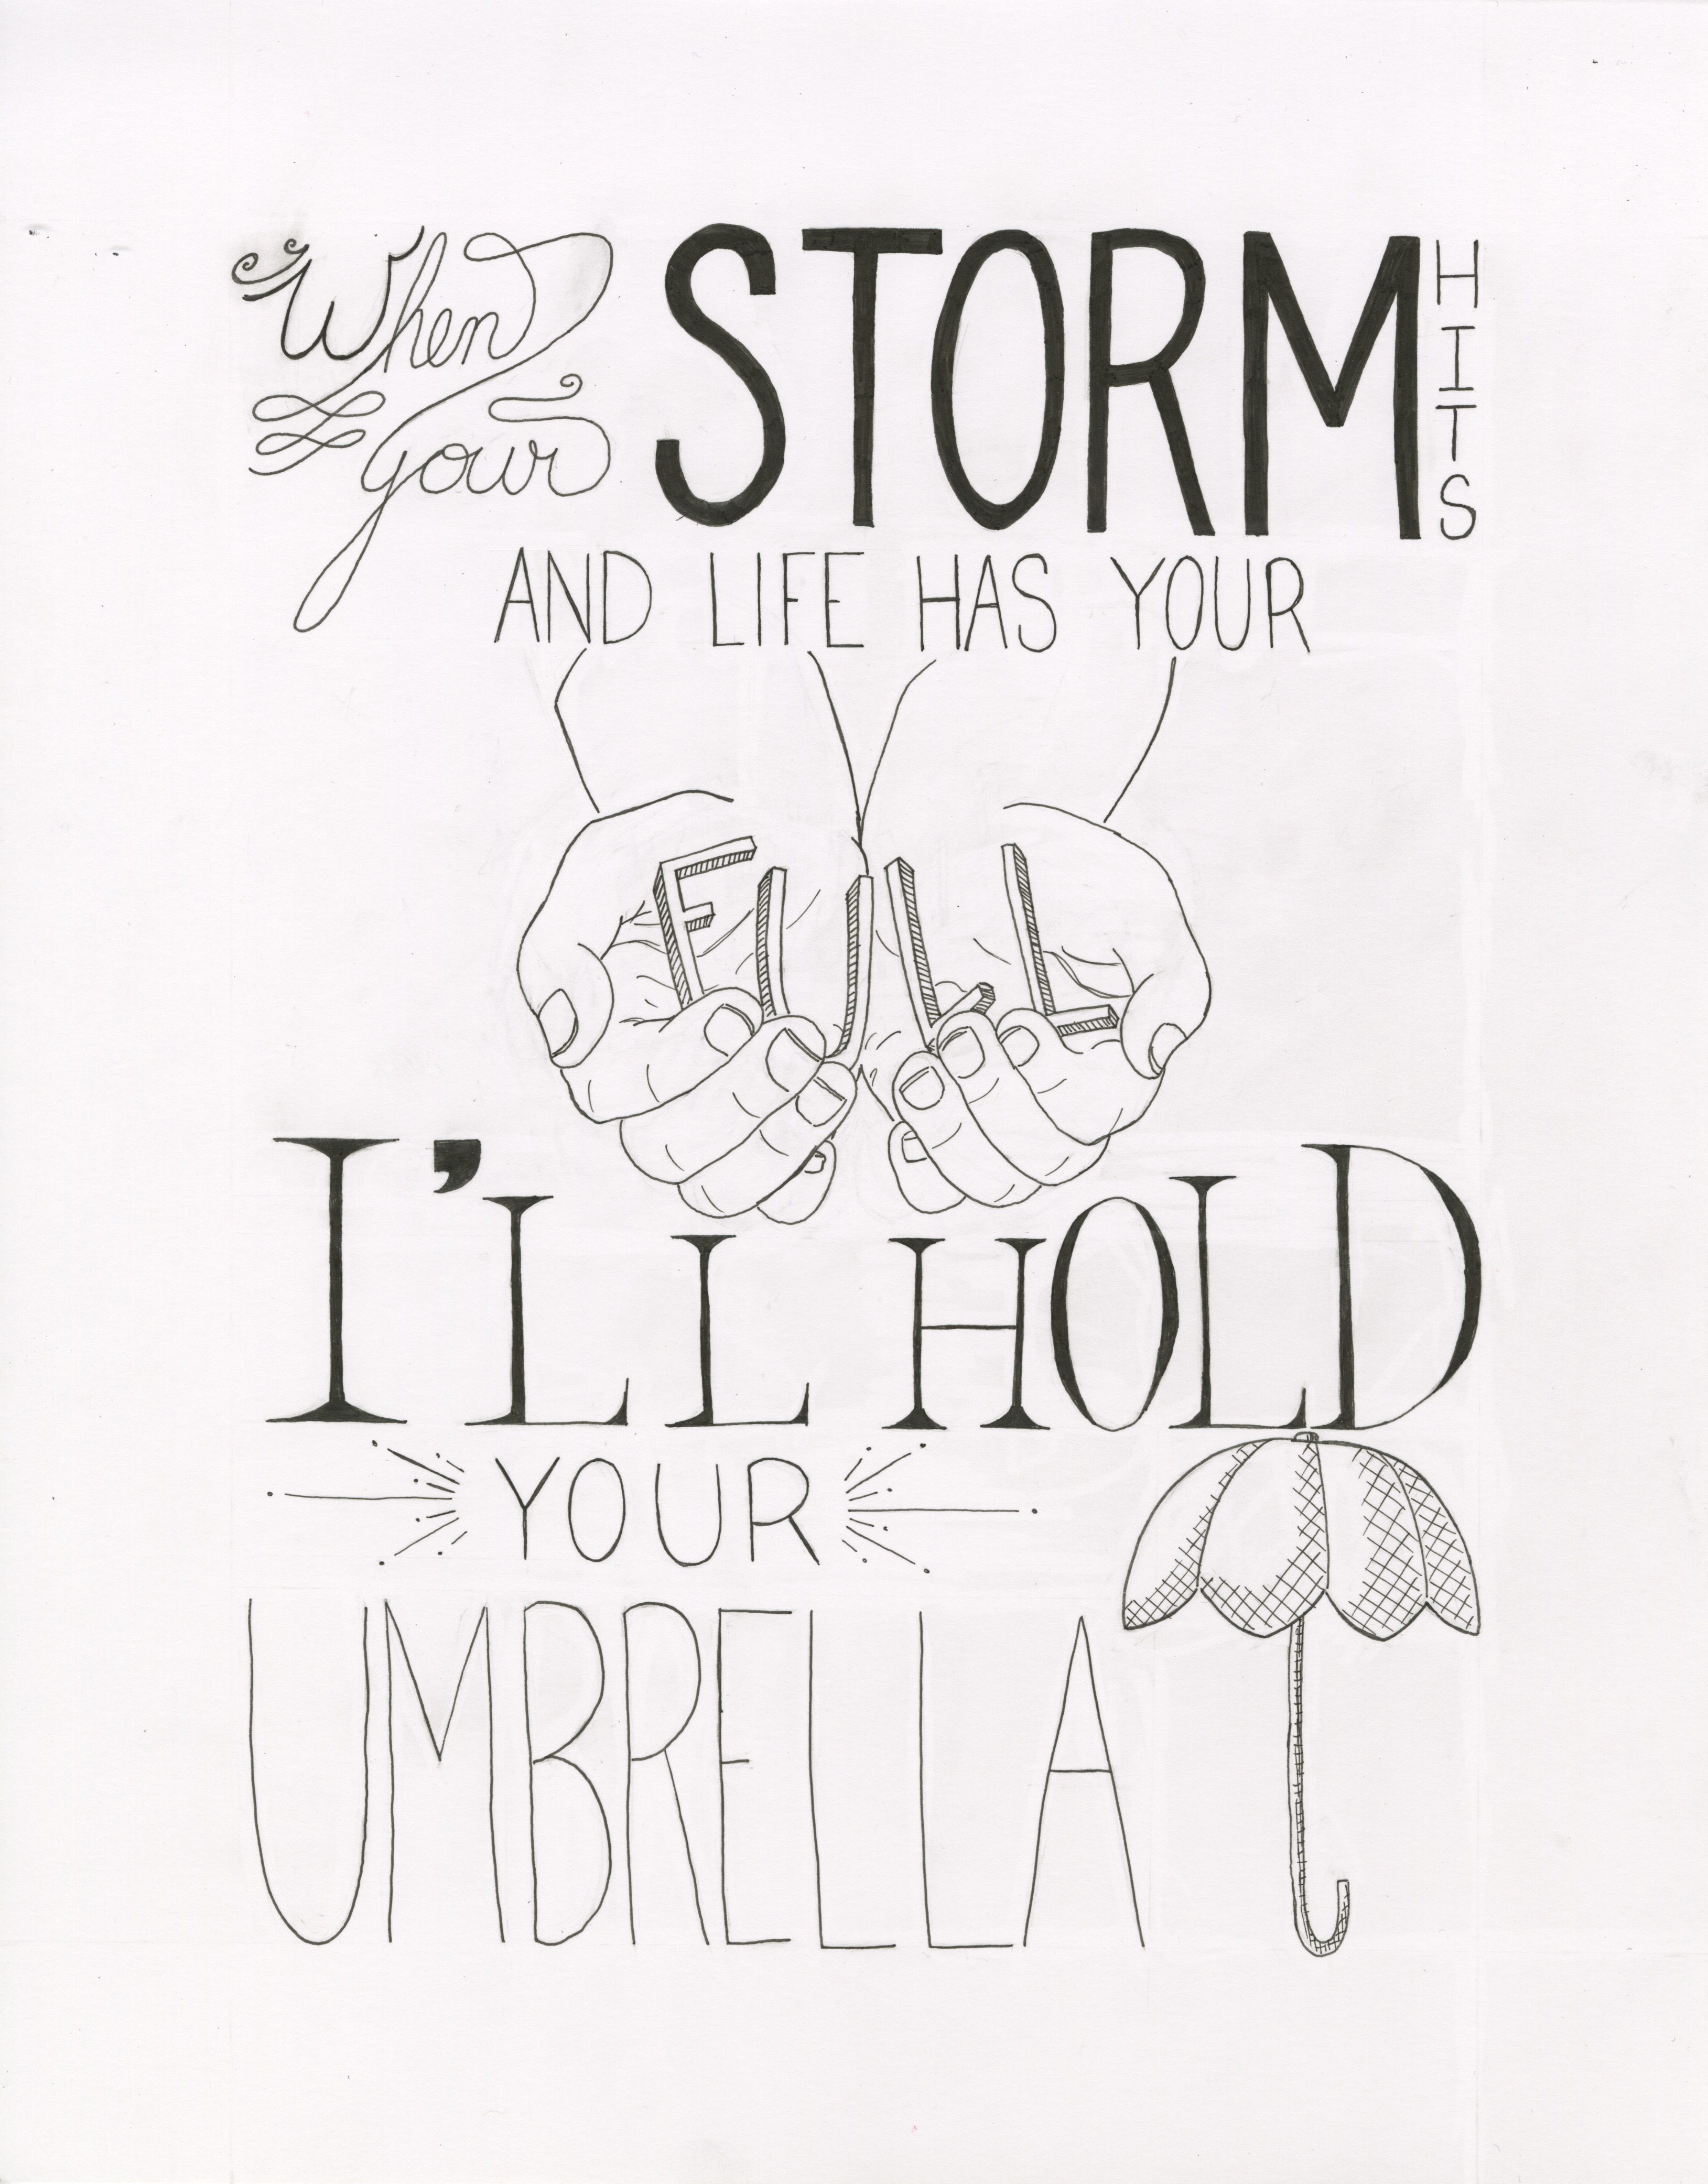 When
your
STORM
HITS
AND LIFE HAS YOUR
FULL
I'LL HOLD
YOUR
UMBRELLA